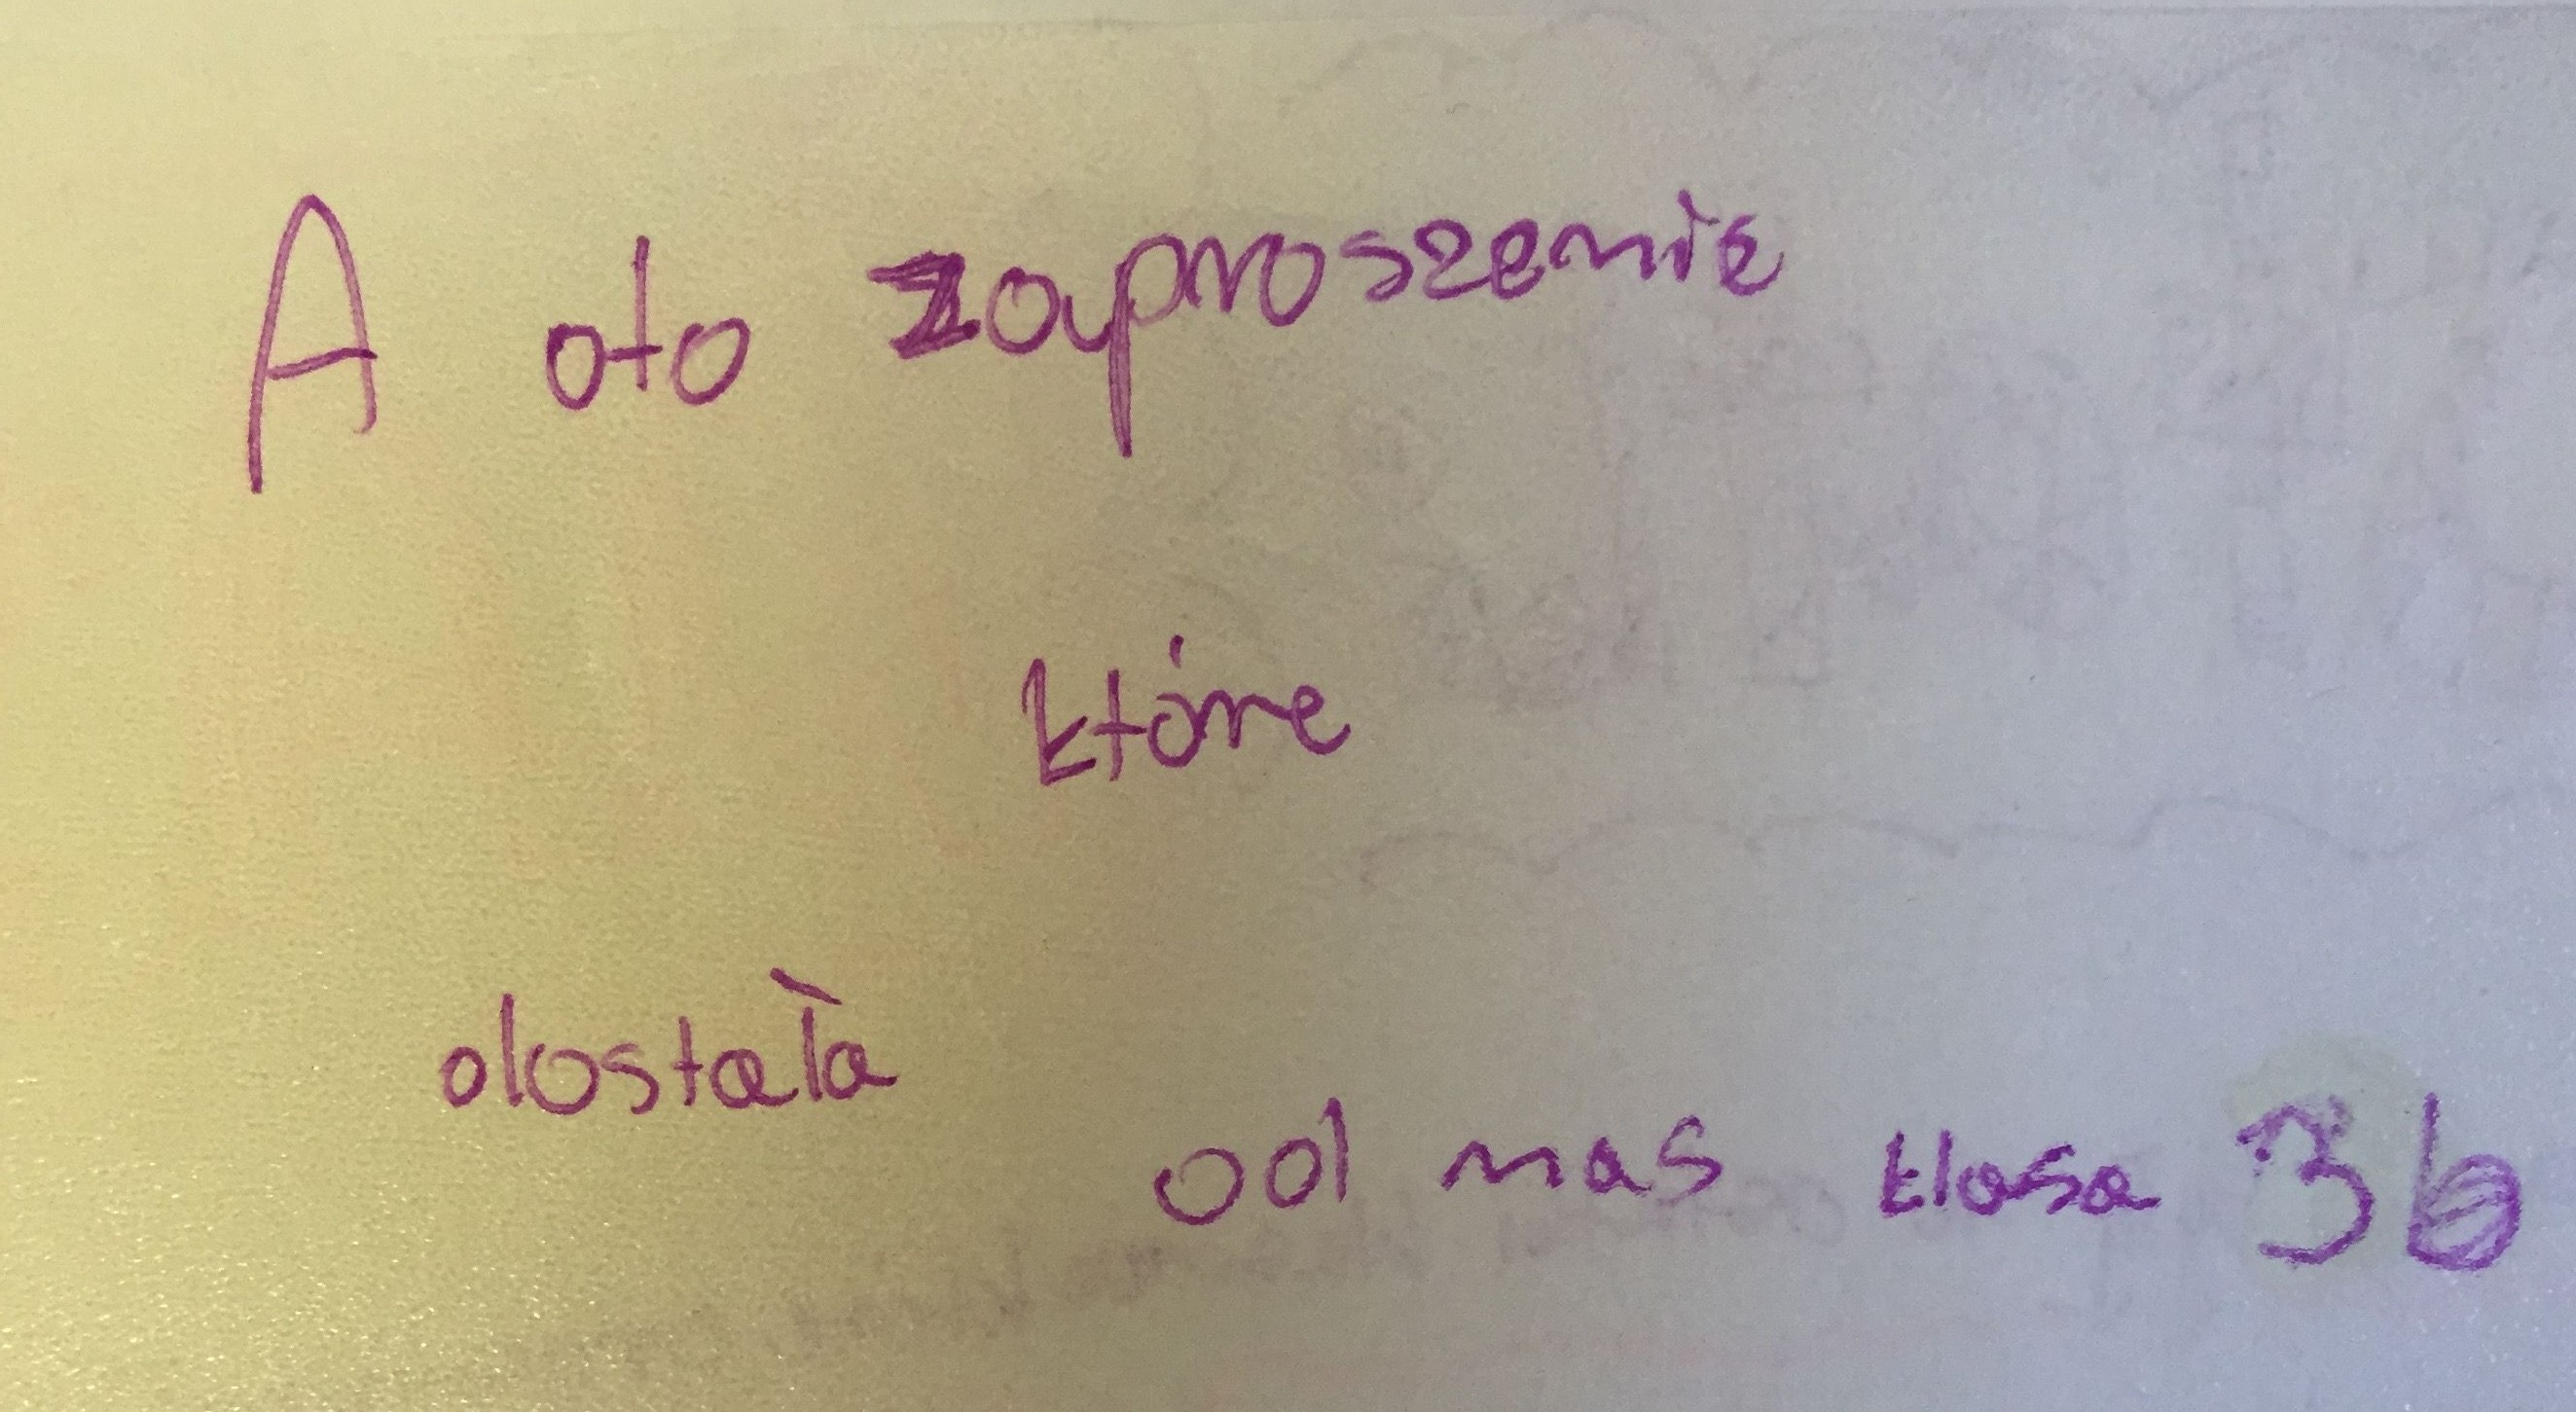 A oto zaproszenie
które
dostała
od nas klasa 3b